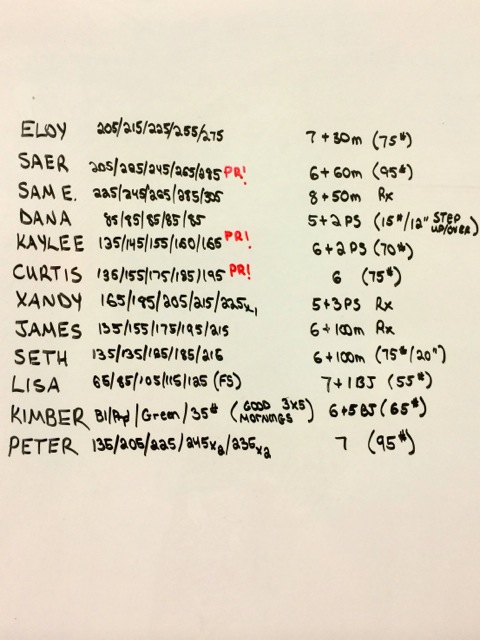 ELOY 205/215/225/255/275 7 + 30m (75#)
SAER 205/225/245/265/285 PR! 6 + 60m (95#)
SAM E. 225/245/265/285/305 8 + 50m Rx
DANA 85/85/85/85/85 5 + 2 PS (15#/12" STEP UP/OVER)
KAYLEE 135/145/155/160/165 PR! 6 + 2 PS (70#)
CURTIS 135/155/175/185/195 PR! 6 (75#)
XANDY 165/195/205/215/225x1 5 + 3 PS Rx
JAMES 135/155/175/195/215 6 + 100m Rx
SETH 135/135/185/185/215 6 + 100m (75#/20")
LISA 65/85/105/115/125 (FS) 7 + 1 BJ (55#)
KIMBER Bl/Rp/Green/35# (GOOD MORNINGS 3x5) 6 + 5 BJ (65#)
PETER 135/205/225/245x2/235x2 7 (95#)